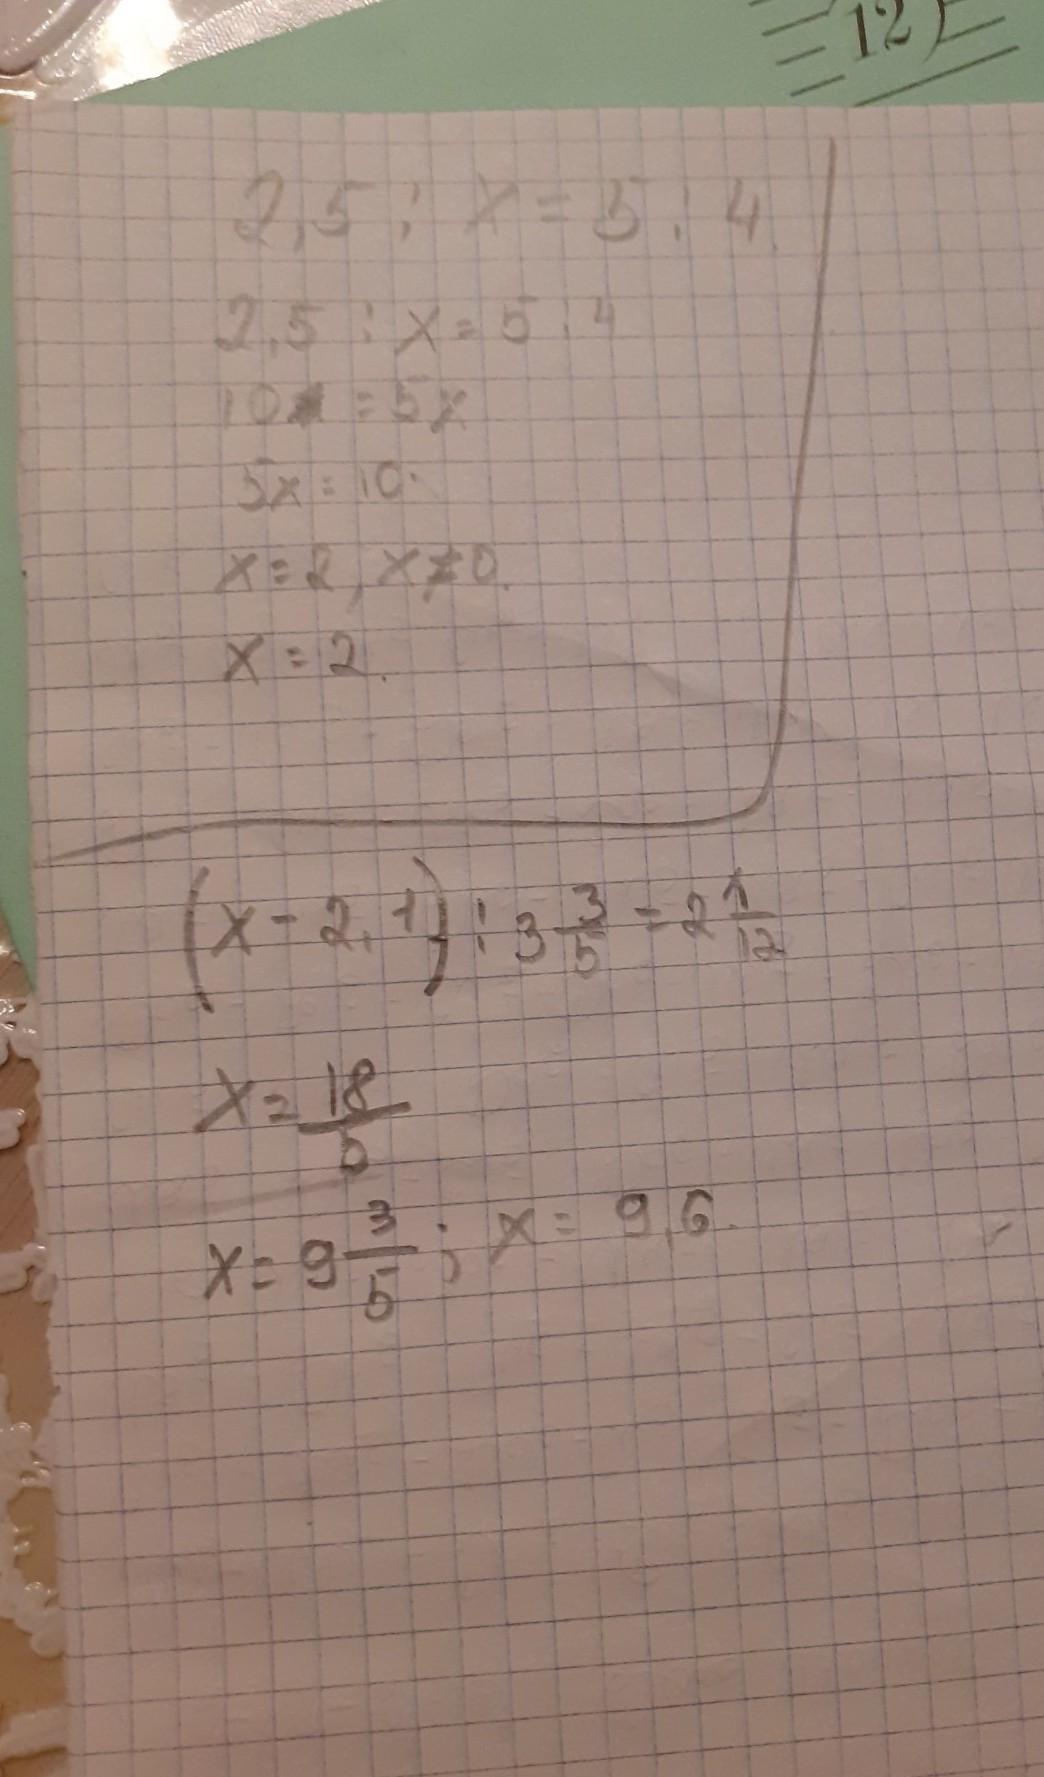 12)
2,5 : x = 5 : 4.
2,5 : x = 5 : 4
10 = 5x
5x = 10.
x = 2, x ≠ 0.
x = 2.
(x - 2,1) : 3 3/5 = 2 1/12
x = 18/5
x = 9 3/5 ; x = 9,6.